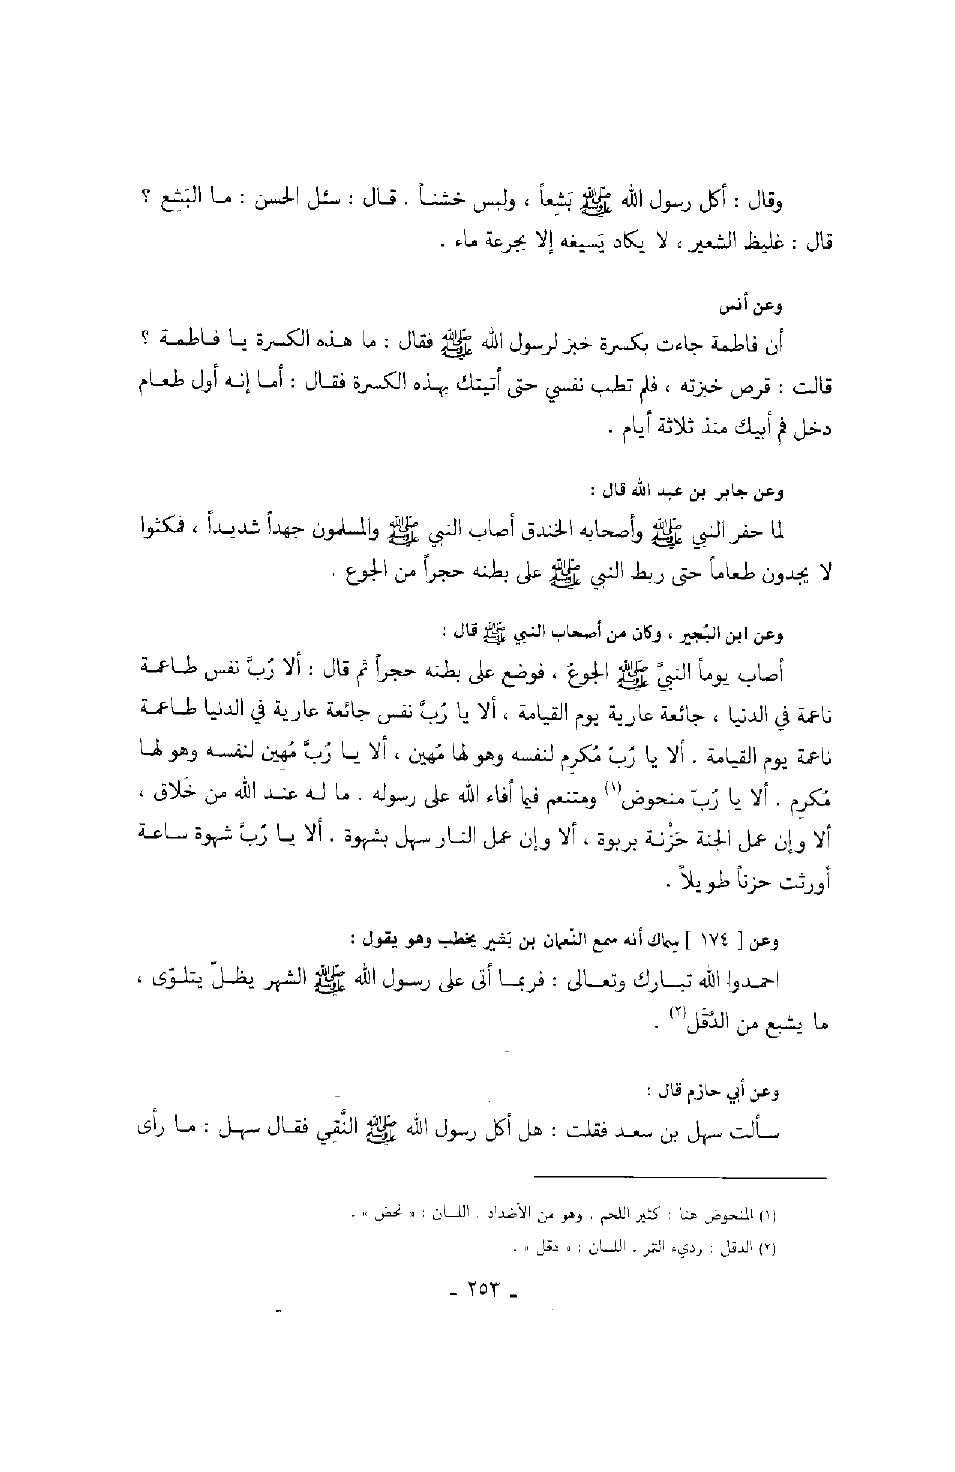 وقال : أكل رسول الله ﷺ بَشِعاً ، ولبس خشنـاً . قـال : سئـل الحسن : مـا البَشِع ؟
قال : غليظ الشعير ، لا يكاد يَسيغه إلا بجرعة ماء .
وعن أنس
أن فاطمة جاءت بكسرة خبز لرسول الله ﷺ فقال : ما هـذه الكـسرة يـا فـاطمـة ؟
قالت : قرص خبزته ، فلم تطب نفسي حتى أتيتك بهـذه الكسرة فقـال : أمـا إنـه أول طعـام
دخل فم أبيك منذ ثلاثة أيام .
وعن جابر بن عبد الله قال :
لما حفر النبي ﷺ وأصحابه الخندق أصاب النبي ﷺ والمسلمون جهداً شديـداً ، فمكثوا
لا يجدون طعاماً حتى ربط النبي ﷺ على بطنه حجراً من الجوع .
وعن ابن البُجير ، وكان من أصحاب النبي ﷺ قال :
أصاب يوماً النبيَّ ﷺ الجوعُ ، فوضع على بطنه حجراً ثم قال : ألا رُبَّ نفس طـاعمـة
ناعمة في الدنيا ، جائعة عارية يوم القيامة ، ألا يا رُبَّ نفس جائعة عارية في الدنيا طـاعمـة
ناعمة يوم القيامة . ألا يا رُبّ مُكرم لنفسه وهو لها مُهين ، ألا يـا رُبَّ مُهين لنفسه وهو لهـا
مُكرم . ألا يا رُبّ منحوض(١) ومتنعم فيما أفاء الله على رسوله . ما لـه عنـد الله من خَلاق ،
ألا وإن عمل الجنة حَزْنـة بربوة ، ألا وإن عمل النـار سهل بشهوة . ألا يـا رُبَّ شهوة سـاعـة
أورثت حزناً طويلاً .
وعن [ ١٧٤ ] سِماك أنه سمع النُّعمان بن بَشير يخطب وهو يقول :
احمـدوا الله تبـارك وتعـالى : فربمـا أتى على رسول الله ﷺ الشهر يظـلّ يتلـوّى ،
ما يشبع من الدَّقَل(٢) .
وعن أبي حازم قال :
سـألت سهل بن سعـد فقلت : هل أكل رسول الله ﷺ النَّقِي فقـال سهـل : مـا رأى
(١) المنحوض هنا : كثير اللحم . وهو من الأضداد . اللسـان : « نحض » .
(٢) الدقل : رديء التمر . اللسان : « دقل » .
ـ ٢٥٣ ـ